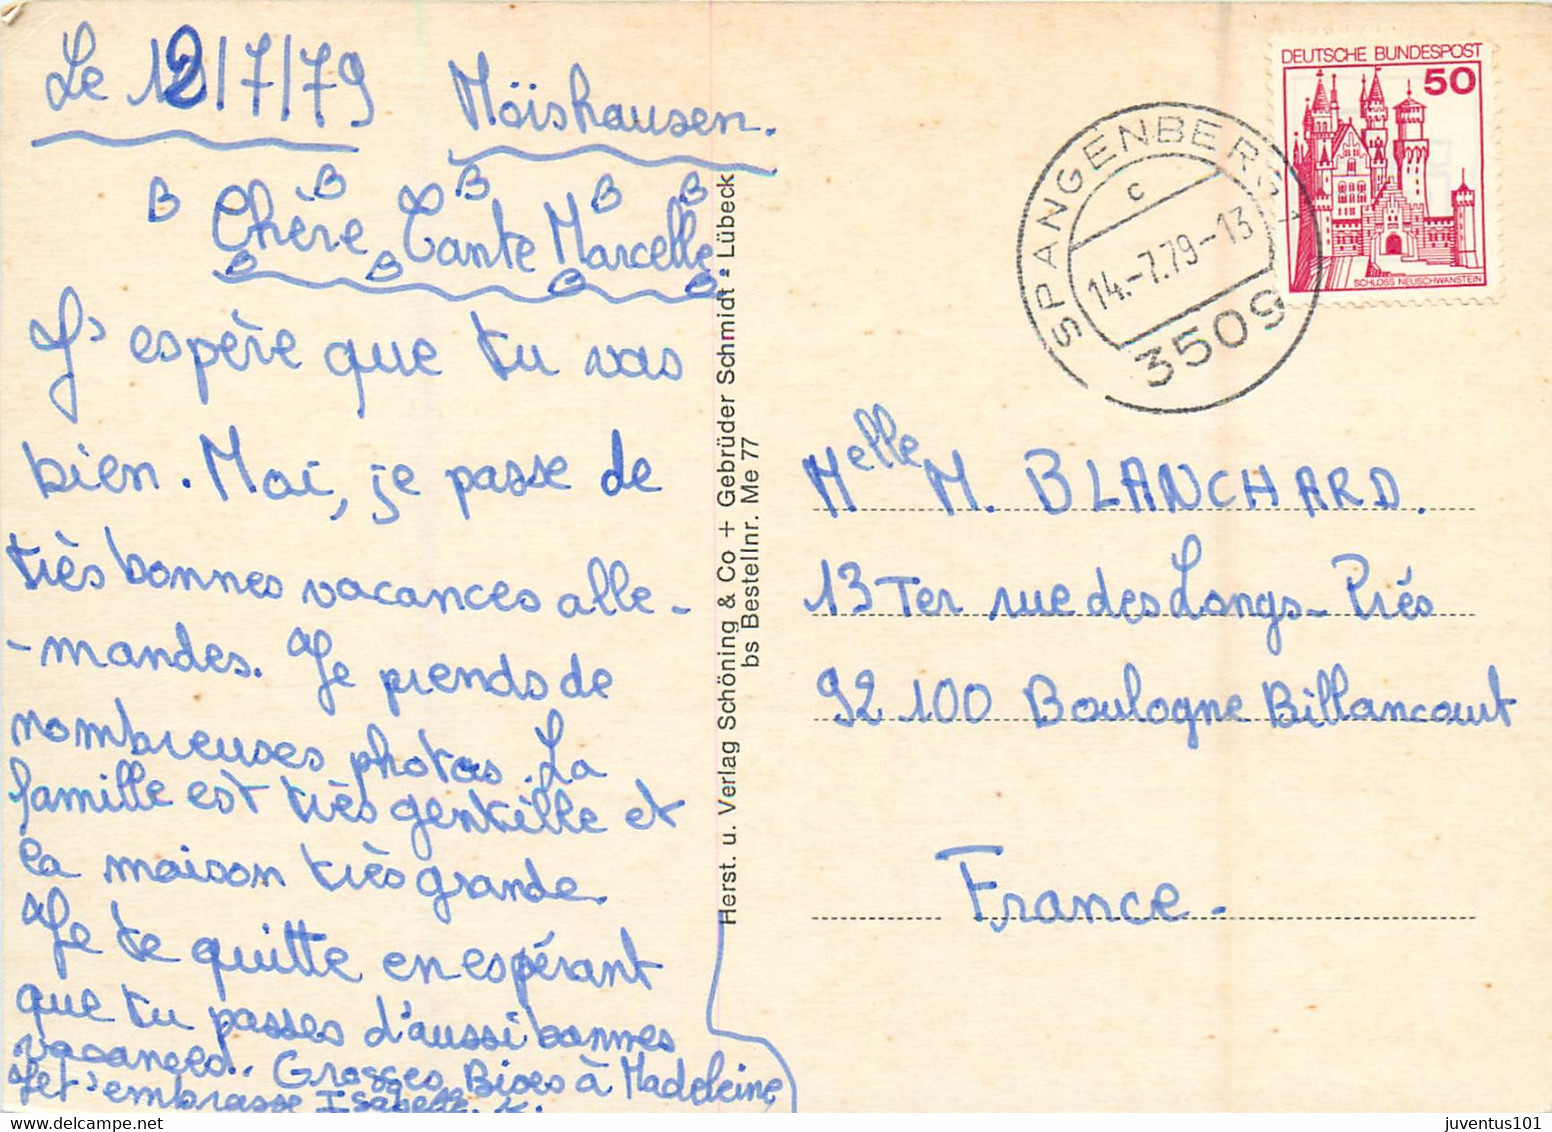 Le 12/7/79 Möishausen.
B B B B B
Chère Tante Marcelle
B B B B
J'espère que tu vas
bien. Moi, je passe de
très bonnes vacances alle-
-mandes. Je prends de
nombreuses photos. La
famille est très gentille et
la maison très grande.
Je te quitte en espérant
que tu passes d'aussi bonnes
vacances. Grosses Bises à Madeleine
Je t'embrasse Isabelle.
Herst. u. Verlag Schöning & Co + Gebrüder Schmidt - Lübeck
bs Bestellnr. Me 77
DEUTSCHE BUNDESPOST
50
SCHLOSS NEUSCHWANSTEIN
SPANGENBERG 1
c
14.-7.79-13
3509
Melle M. BLANCHARD.
13 Ter rue des Longs-Prés
92100 Boulogne Billancourt
France.
juventus101